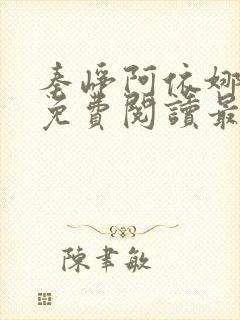 秦崢阿依娜
免費閱讀最
陳聿敏